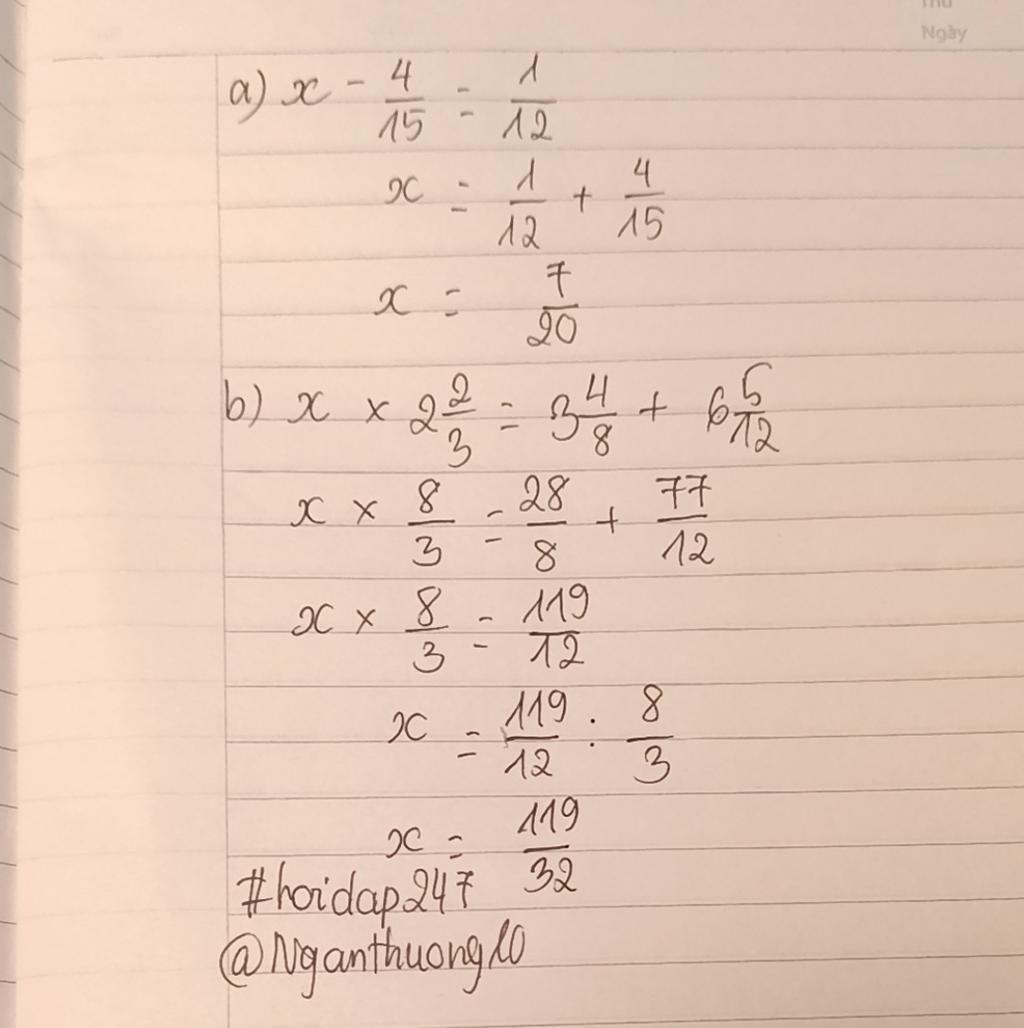 Thứ
Ngày
a) x - 4/15 = 1/12
x = 1/12 + 4/15
x = 7/20
b) x × 2 2/3 = 3 4/8 + 6 5/12
x × 8/3 = 28/8 + 77/12
x × 8/3 = 119/12
x = 119/12 : 8/3
x = 119/32
#hoidap247
@Nganthuong10